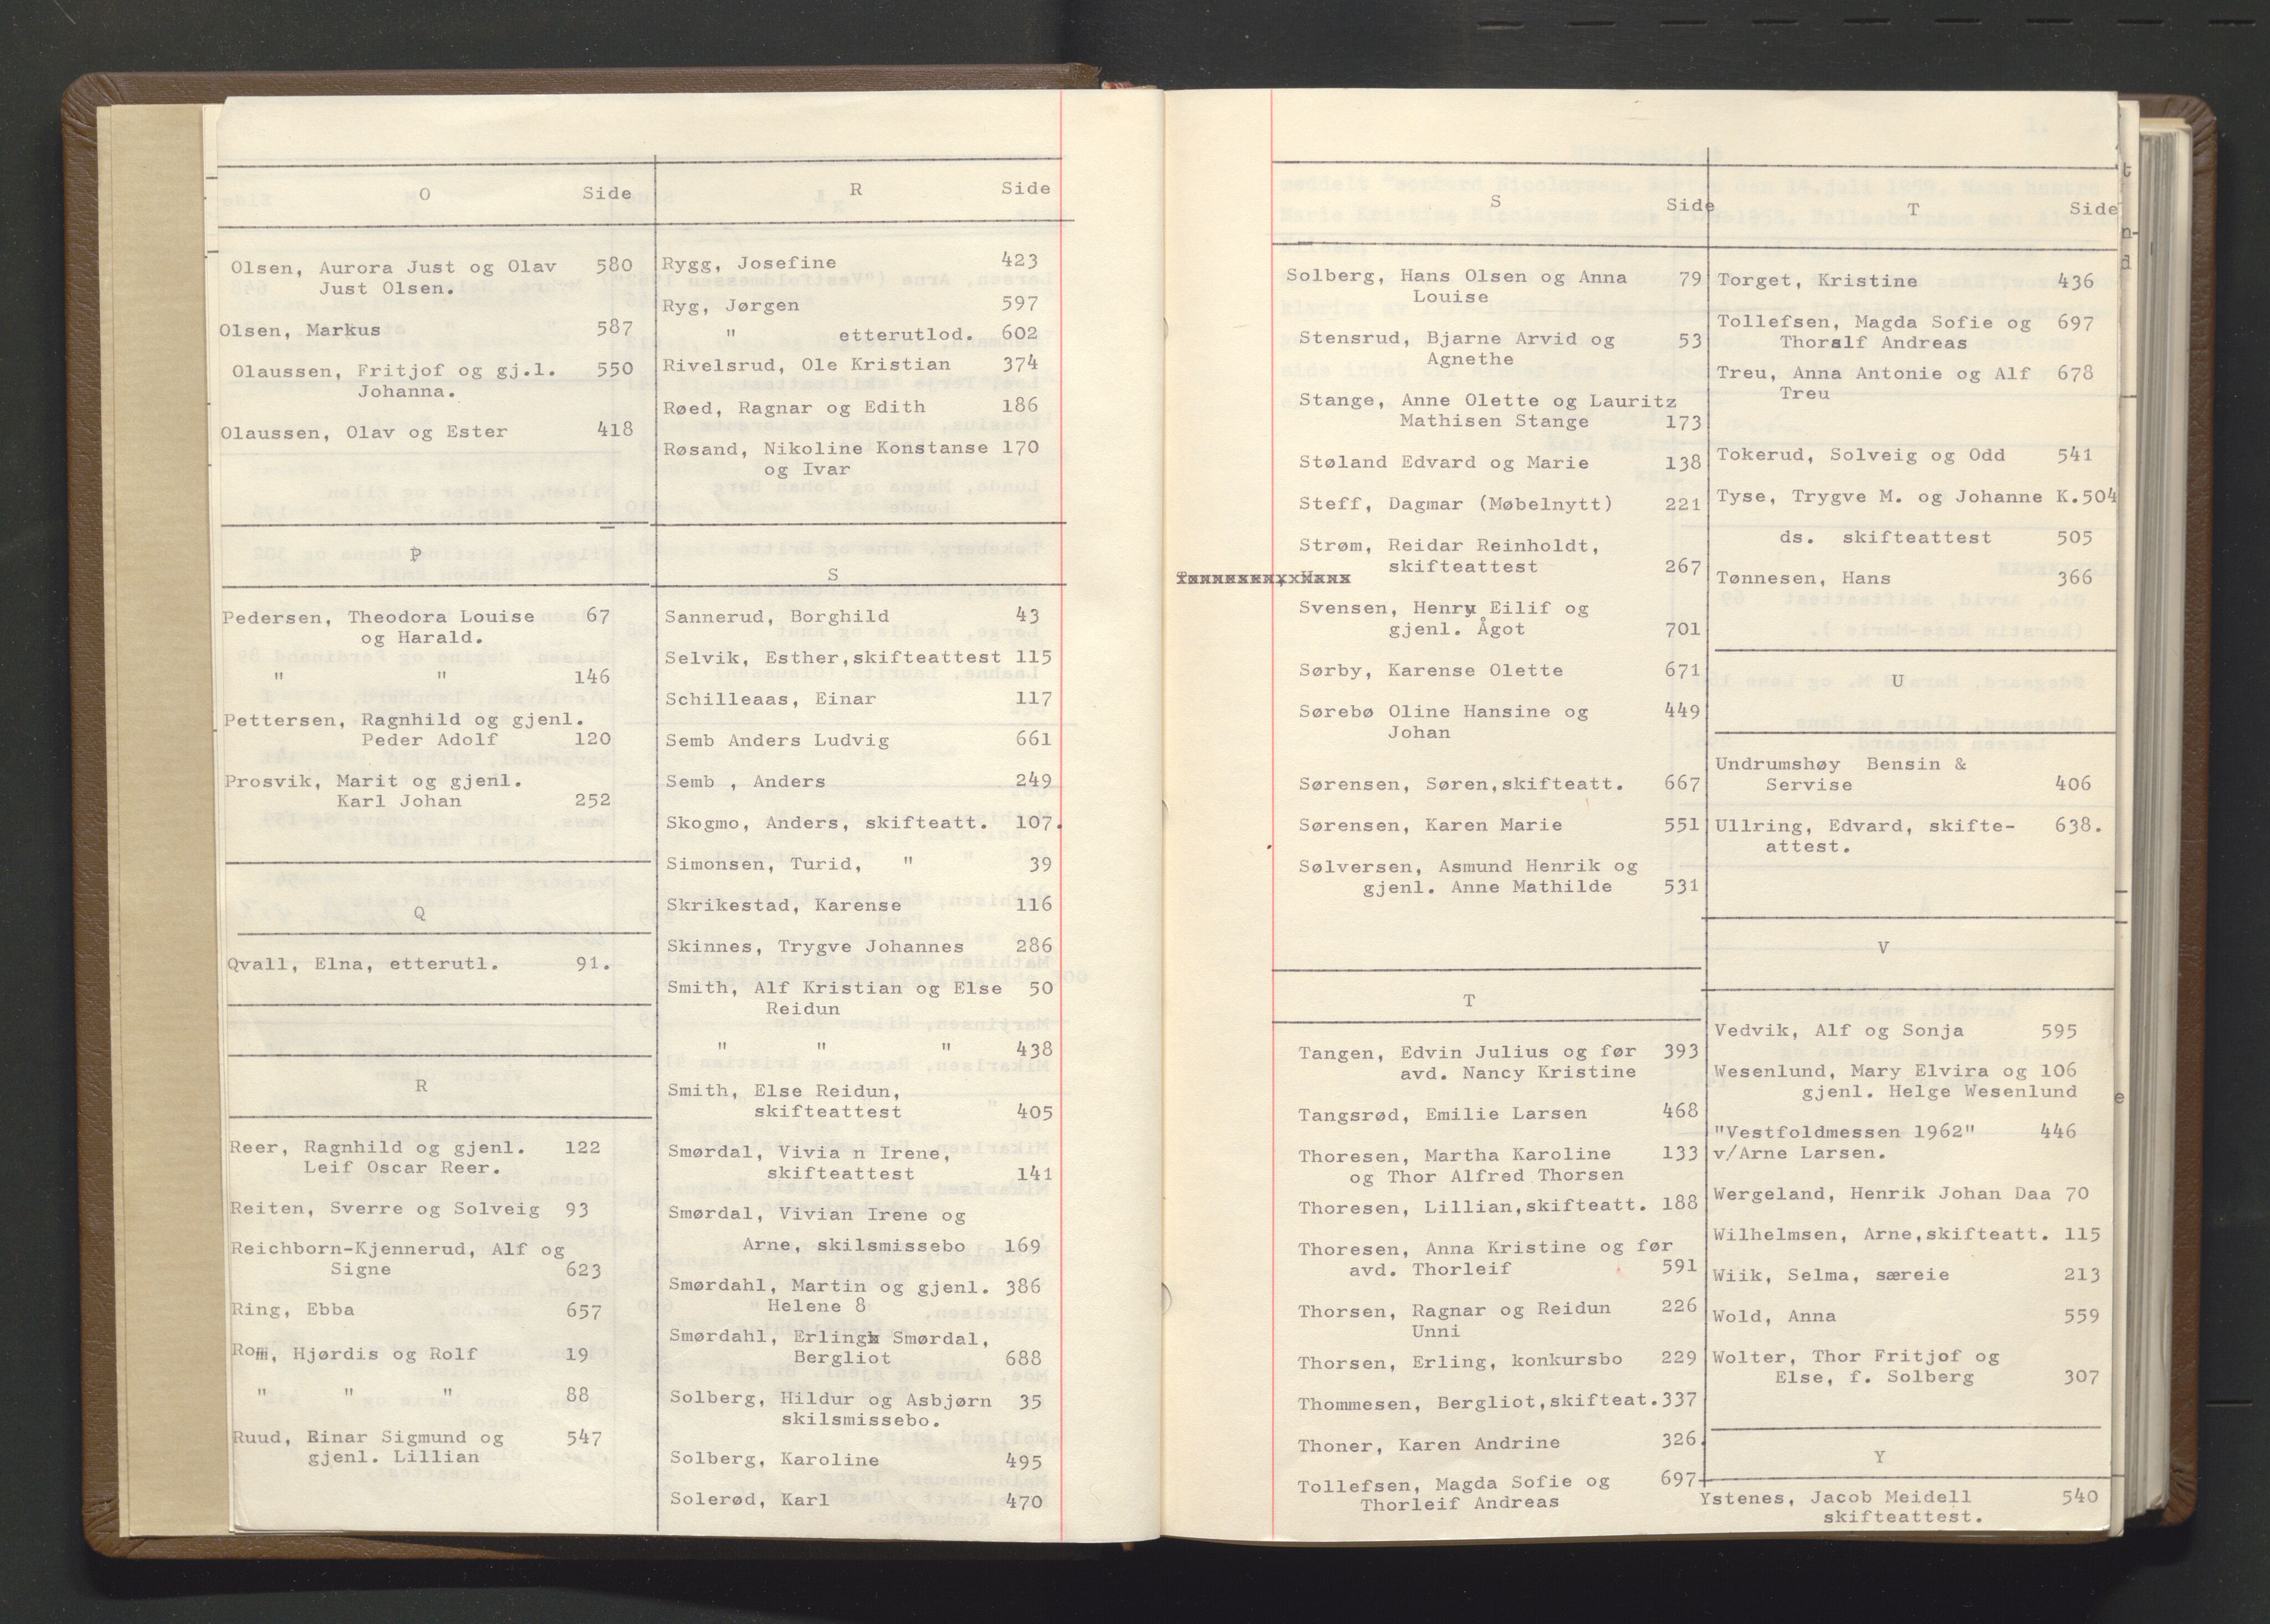 O Side
Olsen, Aurora Just og Olav 580
Just Olsen.
Olsen, Markus 587
Olaussen, Fritjof og gj.l. 550
Johanna.
Olaussen, Olav og Ester 418
P
Pedersen, Theodora Louise 67
og Harald.
" " 146
Pettersen, Ragnhild og gjenl.
Peder Adolf 120
Prosvik, Marit og gjenl.
Karl Johan 252
Q
Qvall, Elna, etterutl. 91.
R
Reer, Ragnhild og gjenl. 122
Leif Oscar Reer.
Reiten, Sverre og Solveig 93
Reichborn-Kjennerud, Alf og
Signe 623
Ring, Ebba 657
Rom, Hjørdis og Rolf 19
" " " 88
Ruud, Einar Sigmund og 547
gjenl. Lillian
R Side
Rygg, Josefine 423
Ryg, Jørgen 597
" etterutlod. 602
Rivelsrud, Ole Kristian 374
Røed, Ragnar og Edith 186
Røsand, Nikoline Konstanse 170
og Ivar
S
Sannerud, Borghild 43
Selvik, Esther,skifteattest 115
Schilleaas, Einar 117
Semb Anders Ludvig 661
Semb , Anders 249
Skogmo, Anders, skifteatt. 107.
Simonsen, Turid, " 39
Skrikestad, Karense 116
Skinnes, Trygve Johannes 286
Smith, Alf Kristian og Else 50
Reidun
" " " 438
Smith, Else Reidun,
skifteattest 405
Smørdal, Vivia n Irene,
skifteattest 141
Smørdal, Vivian Irene og
Arne, skilsmissebo 169
Smørdahl, Martin og gjenl. 386
Helene 8
Smørdahl, Erling Smørdal,
Bergliot 688
Solberg, Hildur og Asbjørn 35
skilsmissebo.
Solberg, Karoline 495
Solerød, Karl 470
S Side
Solberg, Hans Olsen og Anna 79
Louise
Stensrud, Bjarne Arvid og 53
Agnethe
Stange, Anne Olette og Lauritz
Mathisen Stange 173
Støland Edvard og Marie 138
Steff, Dagmar (Møbelnytt) 221
Strøm, Reidar Reinholdt,
skifteattest 267
Svensen, Henry Eilif og
gjenl. Ågot 701
Sørby, Karense Olette 671
Sørebø Oline Hansine og 449
Johan
Sørensen, Søren,skifteatt. 667
Sørensen, Karen Marie 551
Sølversen, Asmund Henrik og
gjenl. Anne Mathilde 531
T
Tangen, Edvin Julius og før 393
avd. Nancy Kristine
Tangsrød, Emilie Larsen 468
Thoresen, Martha Karoline 133
og Thor Alfred Thorsen
Thoresen, Lillian,skifteatt. 188
Thoresen, Anna Kristine og før
avd. Thorleif 591
Thorsen, Ragnar og Reidun 226
Unni
Thorsen, Erling, konkursbo 229
Thommesen, Bergliot,skifteat.337
Thoner, Karen Andrine 326.
Tollefsen, Magda Sofie og 697
Thorleif Andreas
T Side
Torget, Kristine 436
Tollefsen, Magda Sofie og 697
Thoralf Andreas
Treu, Anna Antonie og Alf 678
Treu
Tokerud, Solveig og Odd 541
Tyse, Trygve M. og Johanne K.504
ds. skifteattest 505
Tønnesen, Hans 366
U
Undrumshøy Bensin &
Servise 406
Ullring, Edvard, skifte- 638.
attest.
V
Vedvik, Alf og Sonja 595
Wesenlund, Mary Elvira og 106
gjenl. Helge Wesenlund
"Vestfoldmessen 1962" 446
v/Arne Larsen.
Wergeland, Henrik Johan Daa 70
Wilhelmsen, Arne,skifteatt. 115
Wiik, Selma, særeie 213
Wold, Anna 559
Wolter, Thor Fritjof og
Else, f. Solberg 307
Y
Ystenes, Jacob Meidell 540
skifteattest.